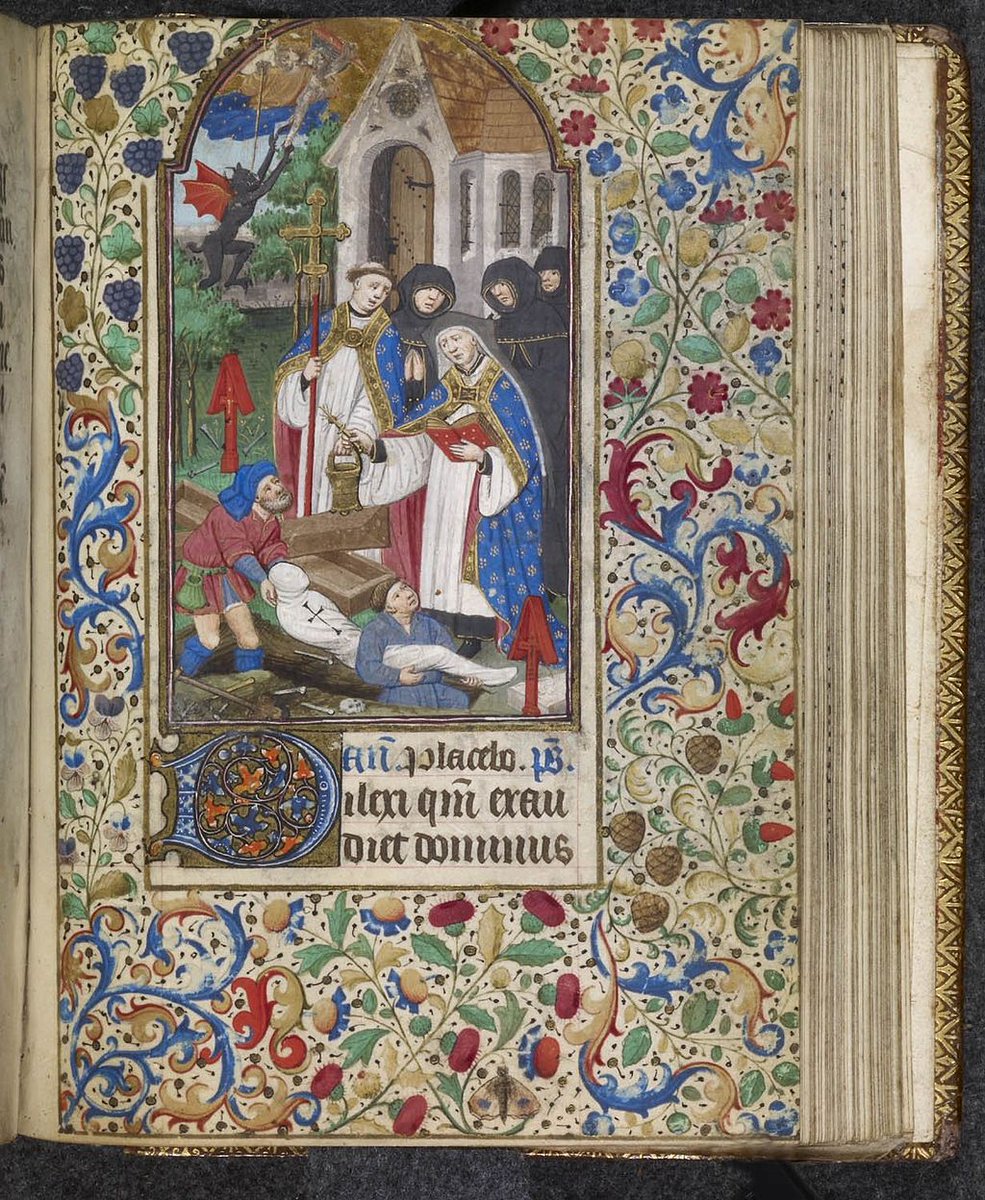 añ. Placebo. ps̄.
Dilexi qm̄ exau
diet dominus